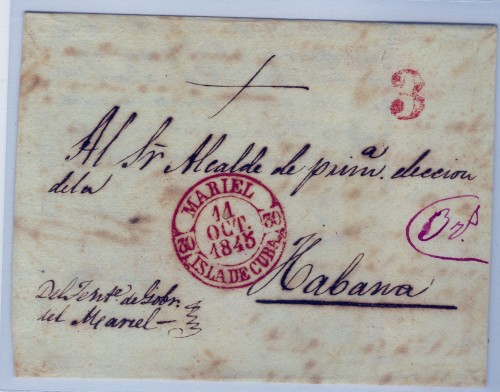 3
Al Sr Alcalde de prima eleccion
de la
MARIEL
11
OCT.
1845
30 30
ISLA DE CUBA
3 rs
Habana
Del Tente de Gobr
del Mariel